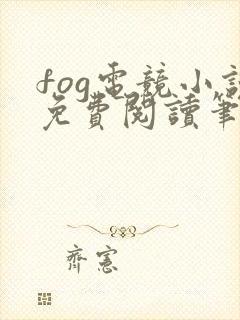 fog電競小說
免費閱讀筆
齊憲